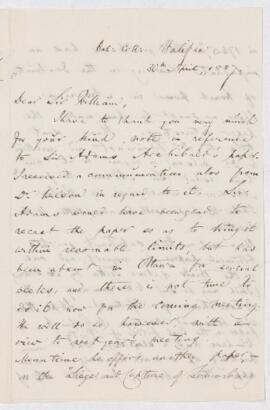 Halifax
30th April 1887
Dear Sir William,
I have to thank you very much
for your kind note in reference
to Sir Adams Archibald's paper.
I received a communication also from
Dr in regard to it. Sir
Adams would have been glad to
recast the paper so as to bring it
within reasonable limits, but has
been absent in Ottawa for several
weeks, and there is not time to
do it now for the coming meeting
He will do so however with a
view to next year's meeting
Meantime he offers another paper
on the Siege and Capture of Louisbourg